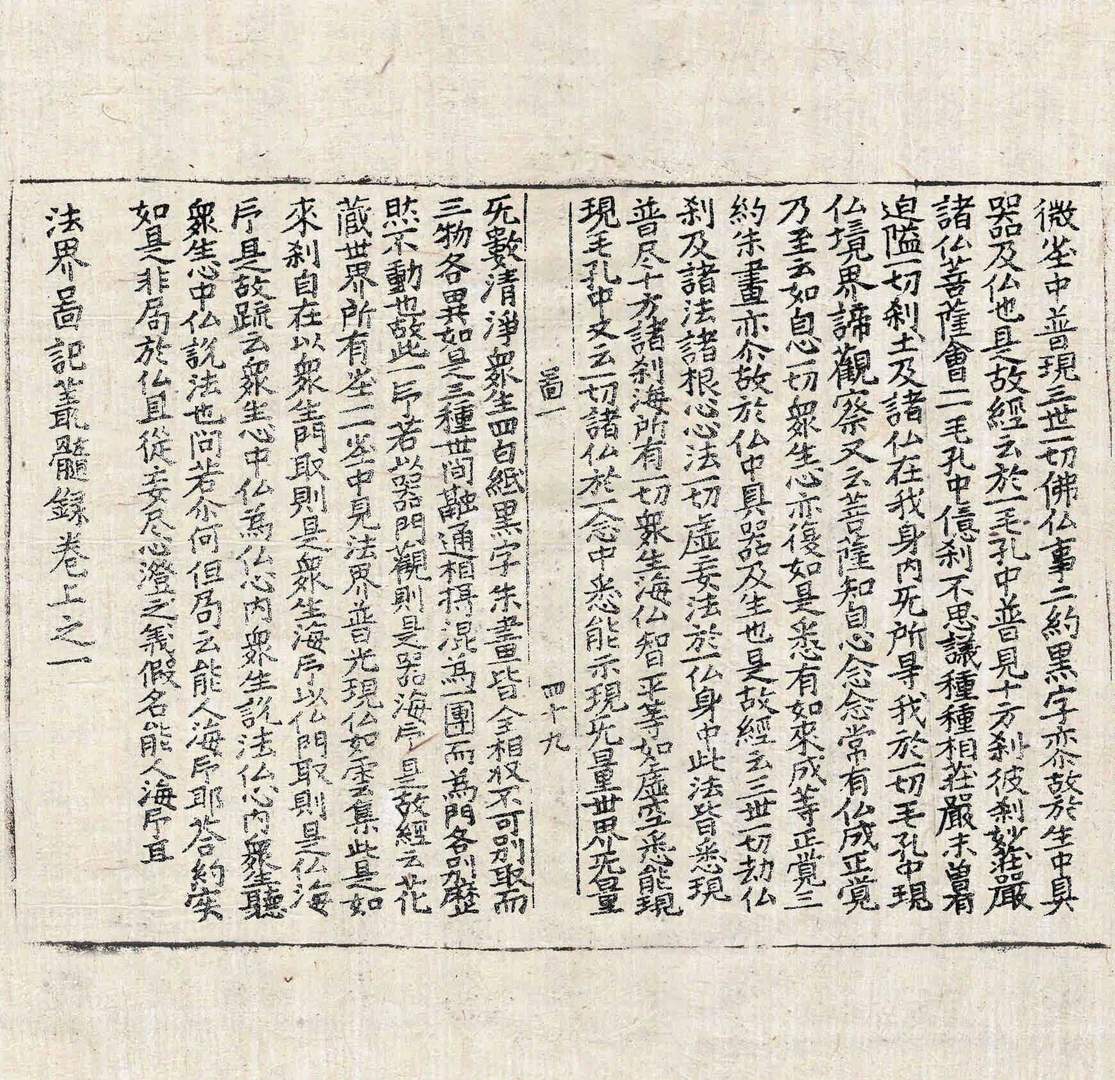 微尘中普現三世一切佛仏事二約黑字亦故於生中具
器及仏也是故經云於一毛孔中普見十方刹彼刹妙莊嚴
諸仏菩薩會一一毛孔中億刹不思議種種相莊嚴未曾有
迫隘一切刹土及諸仏在我身内无所㝵我於一切毛孔中現
仏境界諦觀察又云菩薩知自心念念常有仏成正覚
乃至云如自心一切衆生心亦復如是悉有如來成等正覚三
約朱畫亦尒故於仏中具器及生也是故經云三世一切劫仏
刹及諸法諸根心心法一切虚妄法於一仏身中此法皆悉現
普尽十方諸刹海所有一切衆生海仏智平等如虚空悉能現
現毛孔中又云一切諸仏於一念中悉能示現无量世界无量
啚一 四十九
无數清淨衆生四白紙黑字朱畫皆全相收不可別取而
三物各異如是三種世间融通相㝵混為一團而為門各別歷
然不動也故此一卪若以器門觀則是器海卪是故經云花
蔵世界所有尘一一尘中見法界普光現仏如雲集此是如
來刹自在以衆生門取則是衆生海卪以仏門取則是仏海
卪是故疏云衆生心中仏為仏心内衆生說法仏心内衆生聽
衆生心中仏說法也问若尒何但局云能人海卪耶荅約実
如是非局於仏且從妄尽心澄之義假名能人海卪耳
法界啚記䕺髓録卷上之一